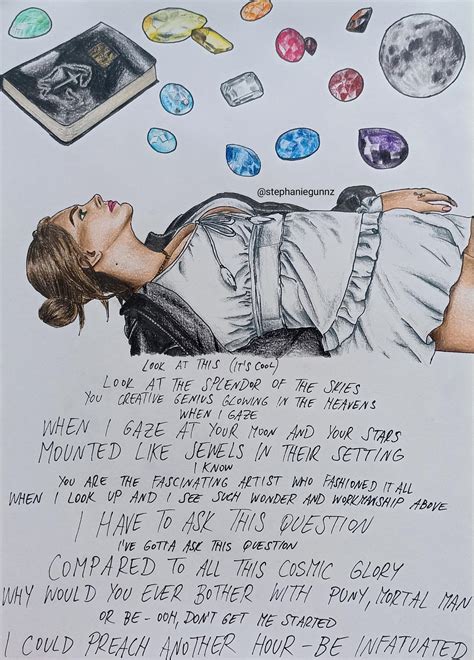 @stephaniegunnz
LOOK AT THIS (IT'S COOL)
LOOK AT THE SPLENDOR OF THE SKIES
YOU CREATIVE GENIUS GLOWING IN THE HEAVENS
WHEN I GAZE
WHEN I GAZE AT YOUR MOON AND YOUR STARS
MOUNTED LIKE JEWELS IN THEIR SETTING
I KNOW
YOU ARE THE FASCINATING ARTIST WHO FASHIONED IT ALL
WHEN I LOOK UP AND I SEE SUCH WONDER AND WORKMANSHIP ABOVE
I HAVE TO ASK THIS QUESTION
I'VE GOTTA ASK THIS QUESTION
COMPARED TO ALL THIS COSMIC GLORY
WHY WOULD YOU EVER BOTHER WITH PUNY, MORTAL MAN
OR BE-OOM, DON'T GET ME STARTED
I COULD PREACH ANOTHER HOUR-BE INFATUATED